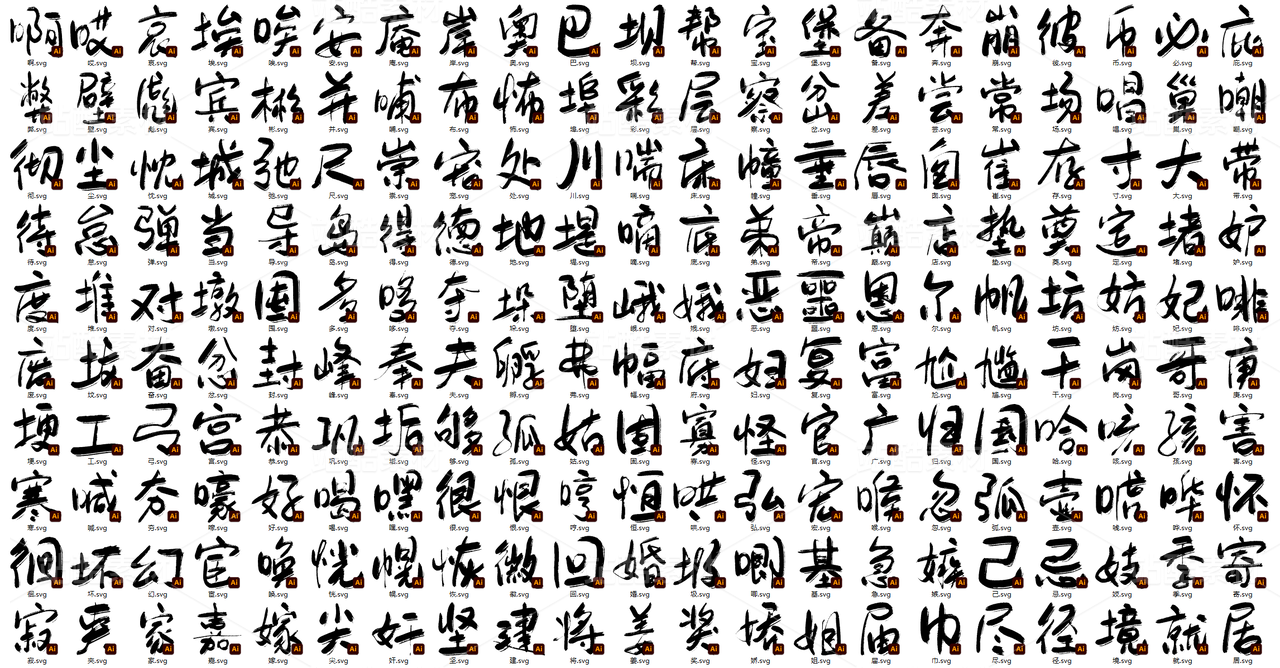 啊 哎 哀 埃 唉 安 庵 岸 奥 巴 坝 帮 宝 堡 备 奔 崩 彼 币 必 庇
啊.svg 哎.svg 哀.svg 埃.svg 唉.svg 安.svg 庵.svg 岸.svg 奥.svg 巴.svg 坝.svg 帮.svg 宝.svg 堡.svg 备.svg 奔.svg 崩.svg 彼.svg 币.svg 必.svg 庇.svg
弊 壁 彪 宾 彬 并 哺 布 怖 埠 彩 层 察 岔 差 尝 常 场 唱 巢 嘲
弊.svg 壁.svg 彪.svg 宾.svg 彬.svg 并.svg 哺.svg 布.svg 怖.svg 埠.svg 彩.svg 层.svg 察.svg 岔.svg 差.svg 尝.svg 常.svg 场.svg 唱.svg 巢.svg 嘲.svg
彻 尘 忱 城 弛 尺 崇 宠 处 川 喘 床 幢 垂 唇 囱 崔 存 寸 大 带
彻.svg 尘.svg 忱.svg 城.svg 弛.svg 尺.svg 崇.svg 宠.svg 处.svg 川.svg 喘.svg 床.svg 幢.svg 垂.svg 唇.svg 囱.svg 崔.svg 存.svg 寸.svg 大.svg 带.svg
待 怠 弹 当 导 岛 得 德 地 堤 嘀 底 弟 帝 巅 店 垫 奠 定 堵 妒
待.svg 怠.svg 弹.svg 当.svg 导.svg 岛.svg 得.svg 德.svg 地.svg 堤.svg 嘀.svg 底.svg 弟.svg 帝.svg 巅.svg 店.svg 垫.svg 奠.svg 定.svg 堵.svg 妒.svg
度 堆 对 墩 囤 多 哆 夺 垛 堕 峨 娥 恶 噩 恩 尔 帆 坊 妨 妃 啡
度.svg 堆.svg 对.svg 墩.svg 囤.svg 多.svg 哆.svg 夺.svg 垛.svg 堕.svg 峨.svg 娥.svg 恶.svg 噩.svg 恩.svg 尔.svg 帆.svg 坊.svg 妨.svg 妃.svg 啡.svg
废 坟 奋 忿 封 峰 奉 夫 孵 弗 幅 府 妇 复 富 尬 尴 干 岗 哥 庚
废.svg 坟.svg 奋.svg 忿.svg 封.svg 峰.svg 奉.svg 夫.svg 孵.svg 弗.svg 幅.svg 府.svg 妇.svg 复.svg 富.svg 尬.svg 尴.svg 干.svg 岗.svg 哥.svg 庚.svg
埂 工 弓 宫 恭 巩 垢 够 孤 姑 固 寡 怪 官 广 归 国 哈 咳 孩 害
埂.svg 工.svg 弓.svg 宫.svg 恭.svg 巩.svg 垢.svg 够.svg 孤.svg 姑.svg 固.svg 寡.svg 怪.svg 官.svg 广.svg 归.svg 国.svg 哈.svg 咳.svg 孩.svg 害.svg
寒 喊 夯 嚎 好 喝 嘿 很 恨 哼 恒 哄 弘 宏 喉 忽 弧 壶 唬 哗 怀
寒.svg 喊.svg 夯.svg 嚎.svg 好.svg 喝.svg 嘿.svg 很.svg 恨.svg 哼.svg 恒.svg 哄.svg 弘.svg 宏.svg 喉.svg 忽.svg 弧.svg 壶.svg 唬.svg 哗.svg 怀.svg
徊 坏 幻 宦 唤 恍 幌 恢 徽 回 婚 圾 唧 基 急 嫉 己 忌 妓 季 寄
徊.svg 坏.svg 幻.svg 宦.svg 唤.svg 恍.svg 幌.svg 恢.svg 徽.svg 回.svg 婚.svg 圾.svg 唧.svg 基.svg 急.svg 嫉.svg 己.svg 忌.svg 妓.svg 季.svg 寄.svg
寂 家 嘉 嫁 尖 奸 坚 建 将 姜 奖 娇 姐 届 巾 尽 径 境 就 居
寂.svg 家.svg 嘉.svg 嫁.svg 尖.svg 奸.svg 坚.svg 建.svg 将.svg 姜.svg 奖.svg 娇.svg 姐.svg 届.svg 巾.svg 尽.svg 径.svg 境.svg 就.svg 居.svg